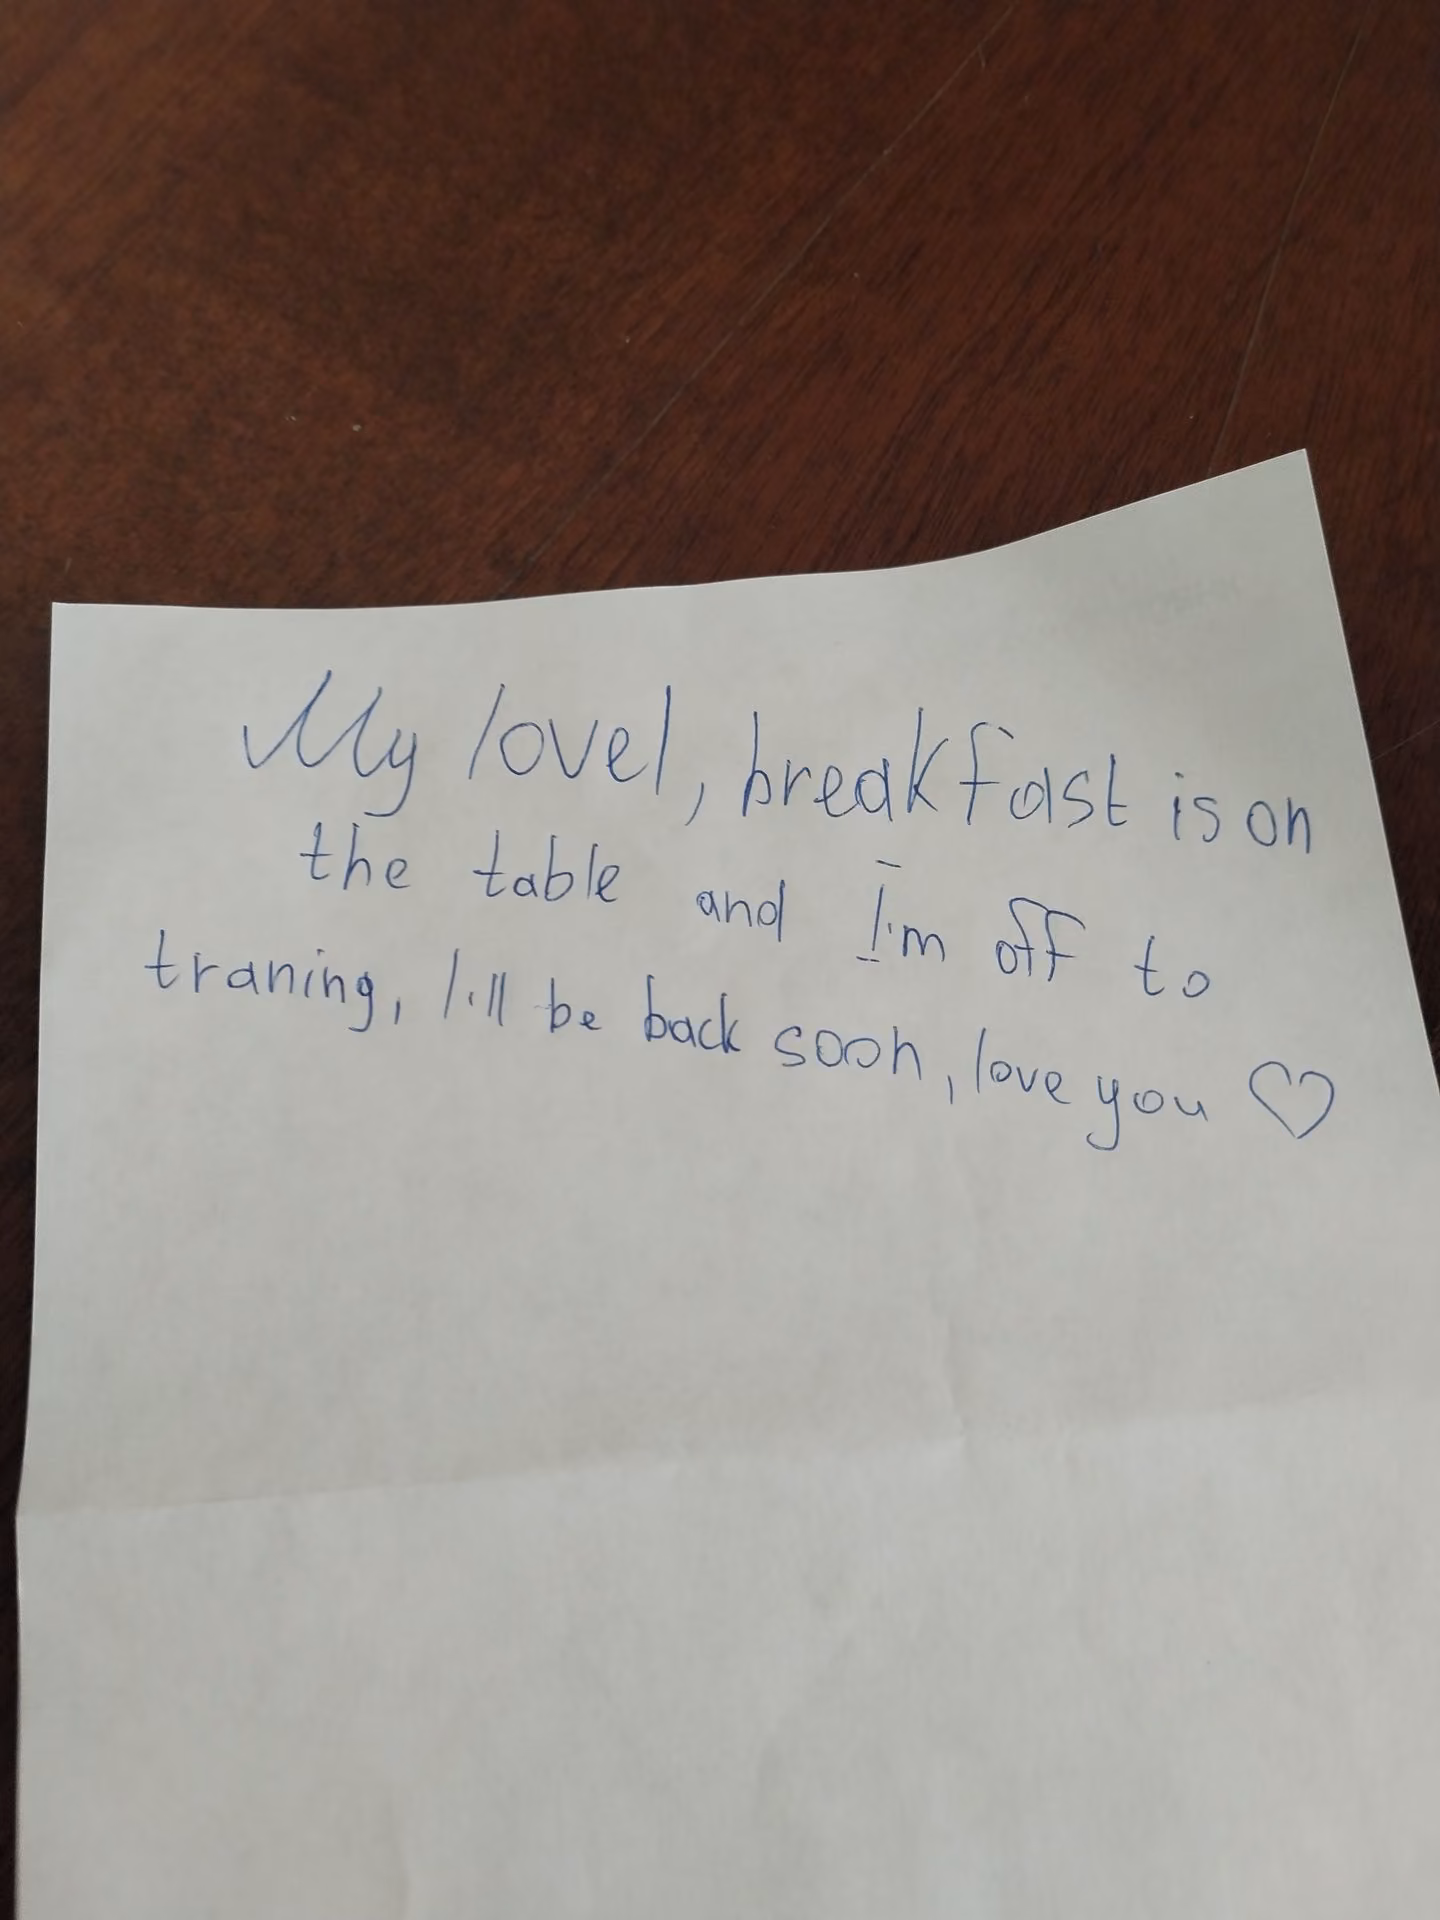 My lovel, breakfast is on
the table and I'm off to
traning, I'll be back soon, love you ♡